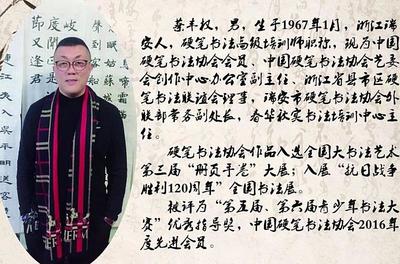 蔡丰权，男，生于1967年1月，浙江瑞
安人，硬笔书法高级培训师职称，现为中国
硬笔书法协会会员、中国硬笔书法协会艺委
会创作中心办公室副主任、浙江省县市区硬
笔书法联谊会理事，瑞安市硬笔书法协会外
联部常务副处长，春华秋实书法培训中心主
任。
硬笔书法协会作品入选全国大书法艺术
第三届“册页手卷”大展；入展“抗日战争
胜利120周年”全国书法展。
被评为“第五届、第六届青少年书法大
赛”优秀指导奖，中国硬笔书法协会2016年
度先进会员。